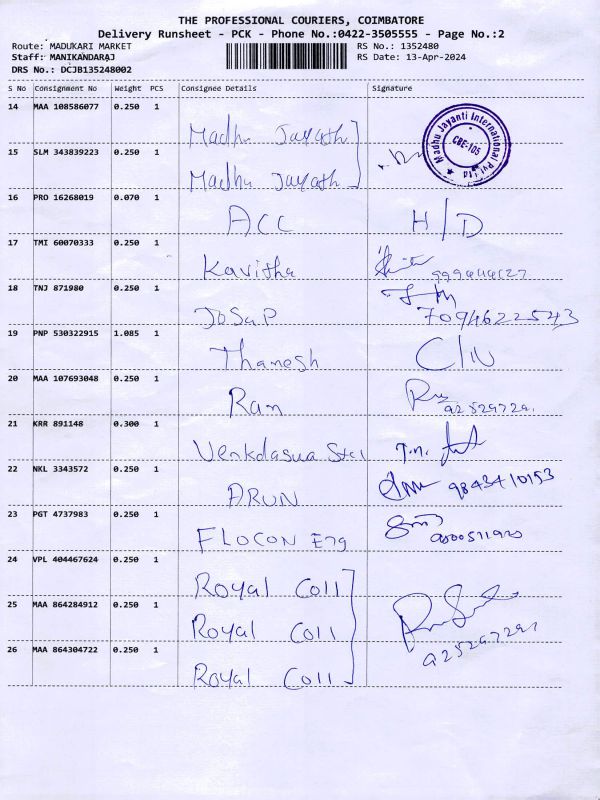 THE PROFESSIONAL COURIERS, COIMBATORE
Delivery Runsheet - PCK - Phone No.:0422-3505555 - Page No.:2
Route: MADUKARI MARKET RS No.: 1352480
Staff: MANIKANDARAJ RS Date: 13-Apr-2024
DRS No.: DCJB135248002
S No Consignment No Weight PCS Consignee Details Signature
14 MAA 108586077 0.250 1
Madhu Jayath
Madhu Jayanti International Pvt Ltd
CBE-105
15 SLM 343839223 0.250 1
Madhu Jayath
16 PRO 16268019 0.070 1
ACC H/D
17 TMI 60070333 0.250 1
Kavitha
18 TNJ 871980 0.250 1
JoSaP 7094622543
19 PNP 530322915 1.085 1
Thamesh C/N
20 MAA 107693048 0.250 1
Ram
21 KRR 891148 0.300 1
22 NKL 3343572 0.250 1
ARUN 9843410153
23 PGT 4737983 0.250 1
FLOCON Eng
24 VPL 404467624 0.250 1
Royal Coll
25 MAA 864284912 0.250 1
Royal Coll
26 MAA 864304722 0.250 1
Royal Coll